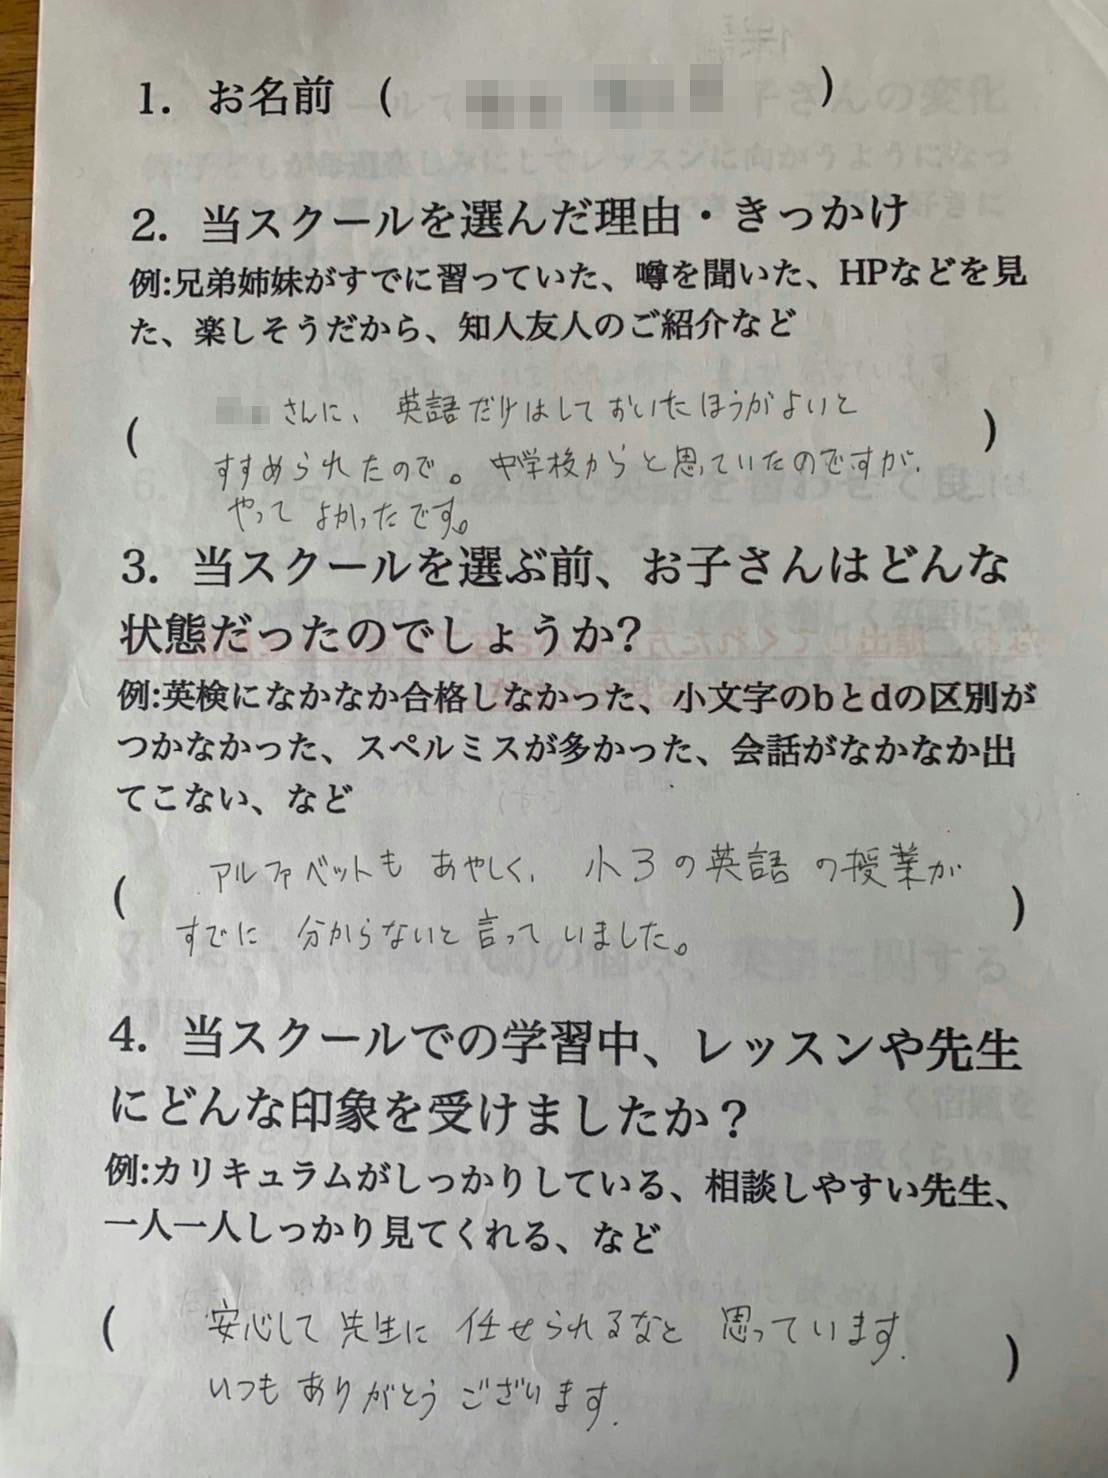 1. お名前 ( )
2. 当スクールを選んだ理由・きっかけ
例:兄弟姉妹がすでに習っていた、噂を聞いた、HPなどを見
た、楽しそうだから、知人友人のご紹介など
( さんに、英語だけはしておいたほうがよいと )
すすめられたので。中学校からと思っていたのですが、
やってよかったです。
3. 当スクールを選ぶ前、お子さんはどんな
状態だったのでしょうか?
例:英検になかなか合格しなかった、小文字のbとdの区別が
つかなかった、スペルミスが多かった、会話がなかなか出
てこない、など
( アルファベットもあやしく、小3の英語の授業が )
すでに分からないと言っていました。
4. 当スクールでの学習中、レッスンや先生
にどんな印象を受けましたか？
例:カリキュラムがしっかりしている、相談しやすい先生、
一人一人しっかり見てくれる、など
( 安心して先生に任せられるなと思っています. )
いつもありがとうございます.